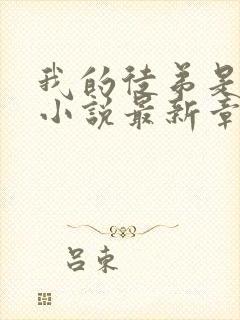 我的徒弟是
小说最新章
吕束